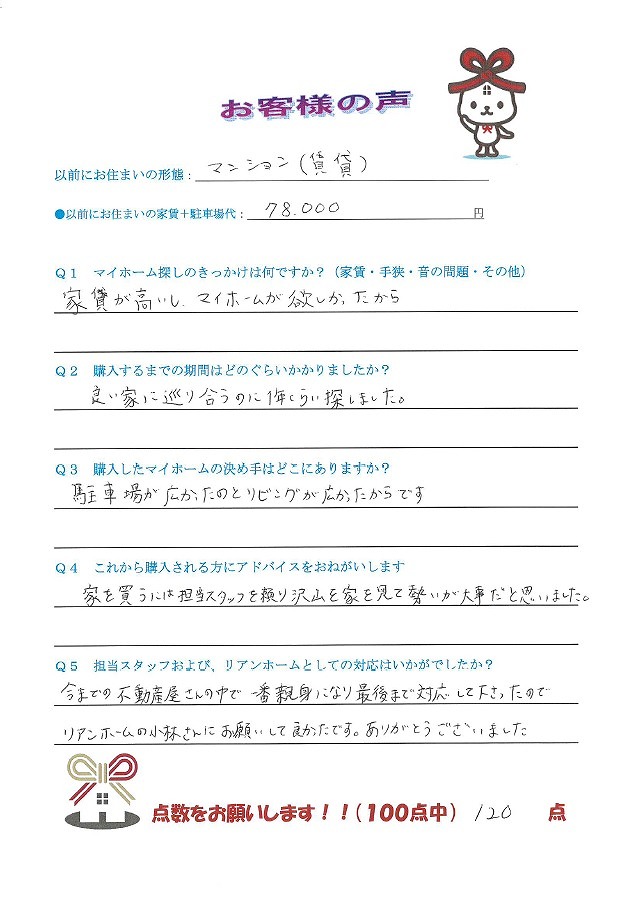 お客様の声
以前にお住まいの形態：マンション(賃貸)
●以前にお住まいの家賃＋駐車場代：78.000円
Q1 マイホーム探しのきっかけは何ですか？（家賃・手狭・音の問題・その他）
家賃が高いし、マイホームが欲しかったから
Q2 購入するまでの期間はどのぐらいかかりましたか？
良い家に巡り合うのに1年くらい探しました。
Q3 購入したマイホームの決め手はどこにありますか？
駐車場が広かったのとリビングが広かったからです
Q4 これから購入される方にアドバイスをおねがいします
家を買うには担当スタッフを頼り沢山を家を見て勢いが大事だと思いました。
Q5 担当スタッフおよび、リアンホームとしての対応はいかがでしたか？
今までの不動産屋さんの中で一番親身になり最後まで対応して下さったので
リアンホームの小林さんにお願いして良かったです。ありがとうございました
点数をお願いします！！(100点中) 120 点